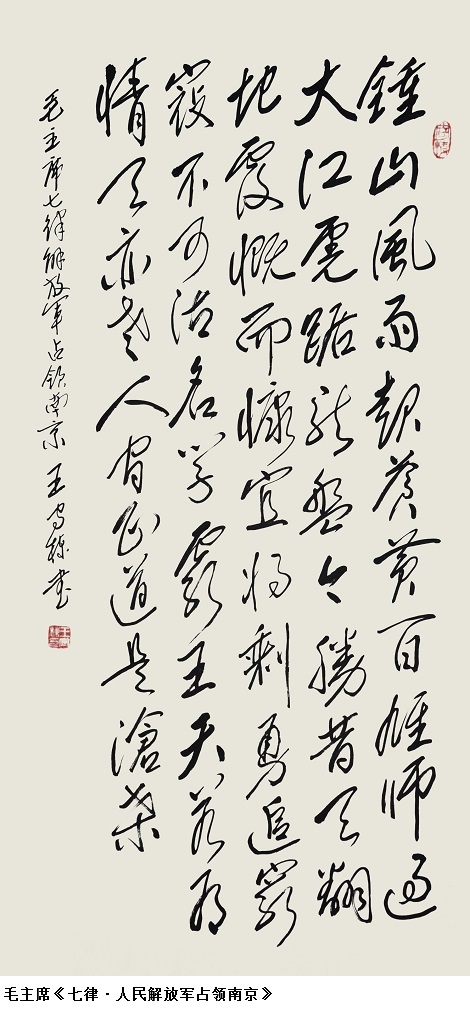 鍾山風雨起蒼黄百雄師過
大江虎踞龍盤今勝昔天翻
地覆慨而慷宜将剩勇追窮
寇不可沽名学霸王天若有
情天亦老人间正道是滄桑
毛主席七律解放军占领南京 王书
毛主席《七律·人民解放军占领南京》